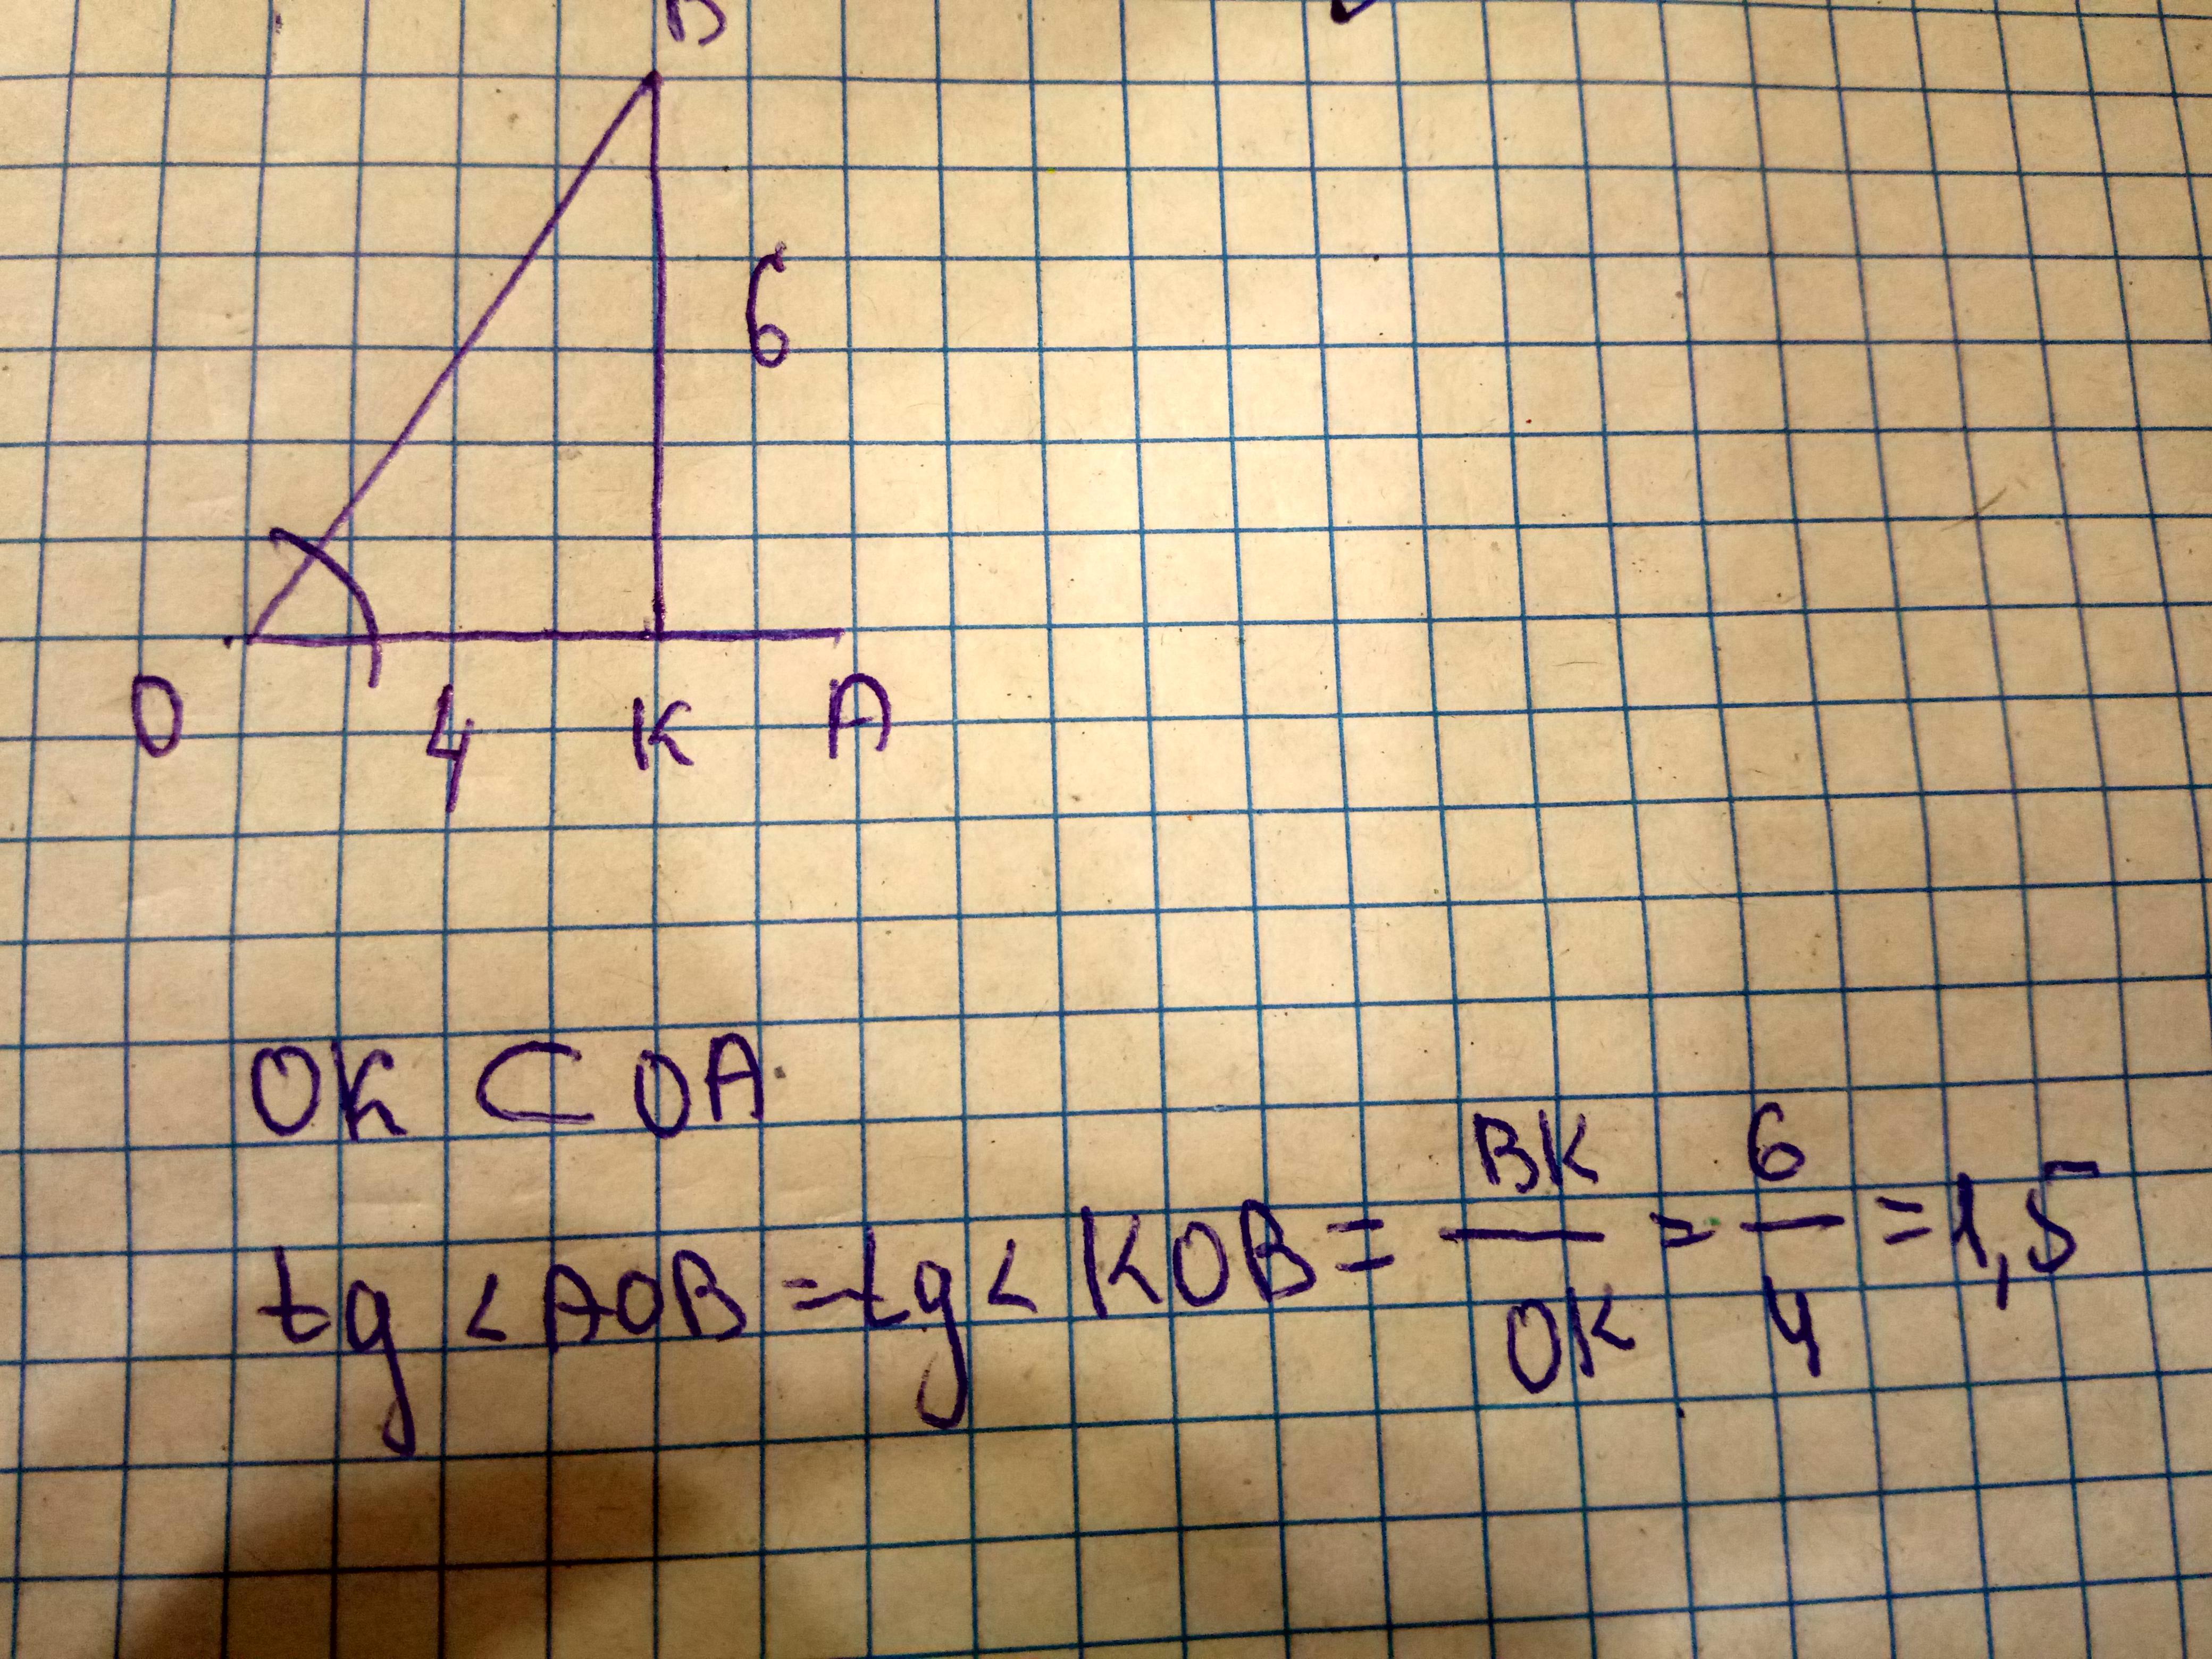 B
6
O 4 K A
OK ⊂ OA
tg < AOB = tg < KOB = BK/OK = 6/4 = 1,5